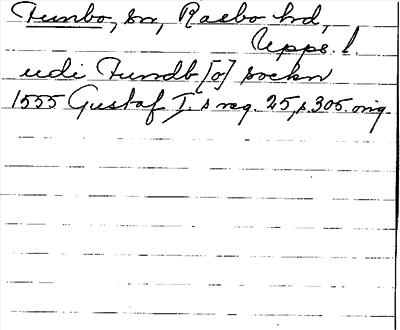 Funbo, sn, Rasbo hd,
Upps. l.
udi Fundb [o] sockn
1555 Gustaf I:s reg. 25, s. 305. orig.